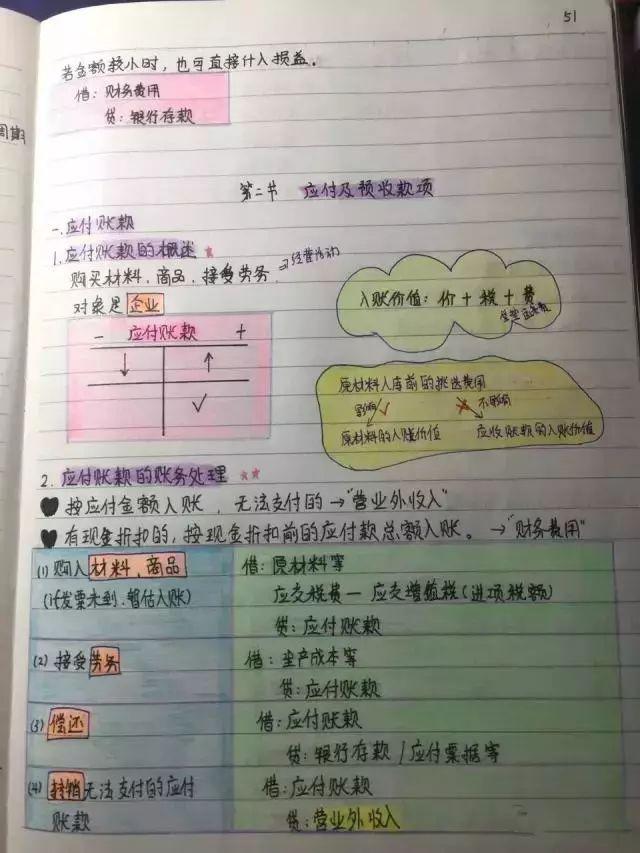 51
若金额较小时，也可直接计入损益。
借：财务费用
贷：银行存款
周期
第二节 应付及预收款项
一、应付账款
1. 应付账款的概述 ★
购买材料、商品、接受劳务 → 经营活动
对象是企业
入账价值：价+税+费
- 应付账款 +
↓ ↑
✓
原材料入库前的挑选费用
影响 ✓ ✗ 不影响
原材料的入账价值 应收账款的入账价值
2. 应付账款的账务处理 ★★
♥ 按应付金额入账，无法支付的→"营业外收入"
♥ 有现金折扣的，按现金折扣前的应付款总额入账。→"财务费用"
(1) 购入材料、商品 借：原材料等
(讠发票未到，暂估入账) 应交税费—应交增值税(进项税额)
贷：应付账款
(2) 接受劳务 借：生产成本等
贷：应付账款
(3) 偿还 借：应付账款
贷：银行存款/应付票据等
(4) 转销无法支付的应付 借：应付账款
账款 贷：营业外收入